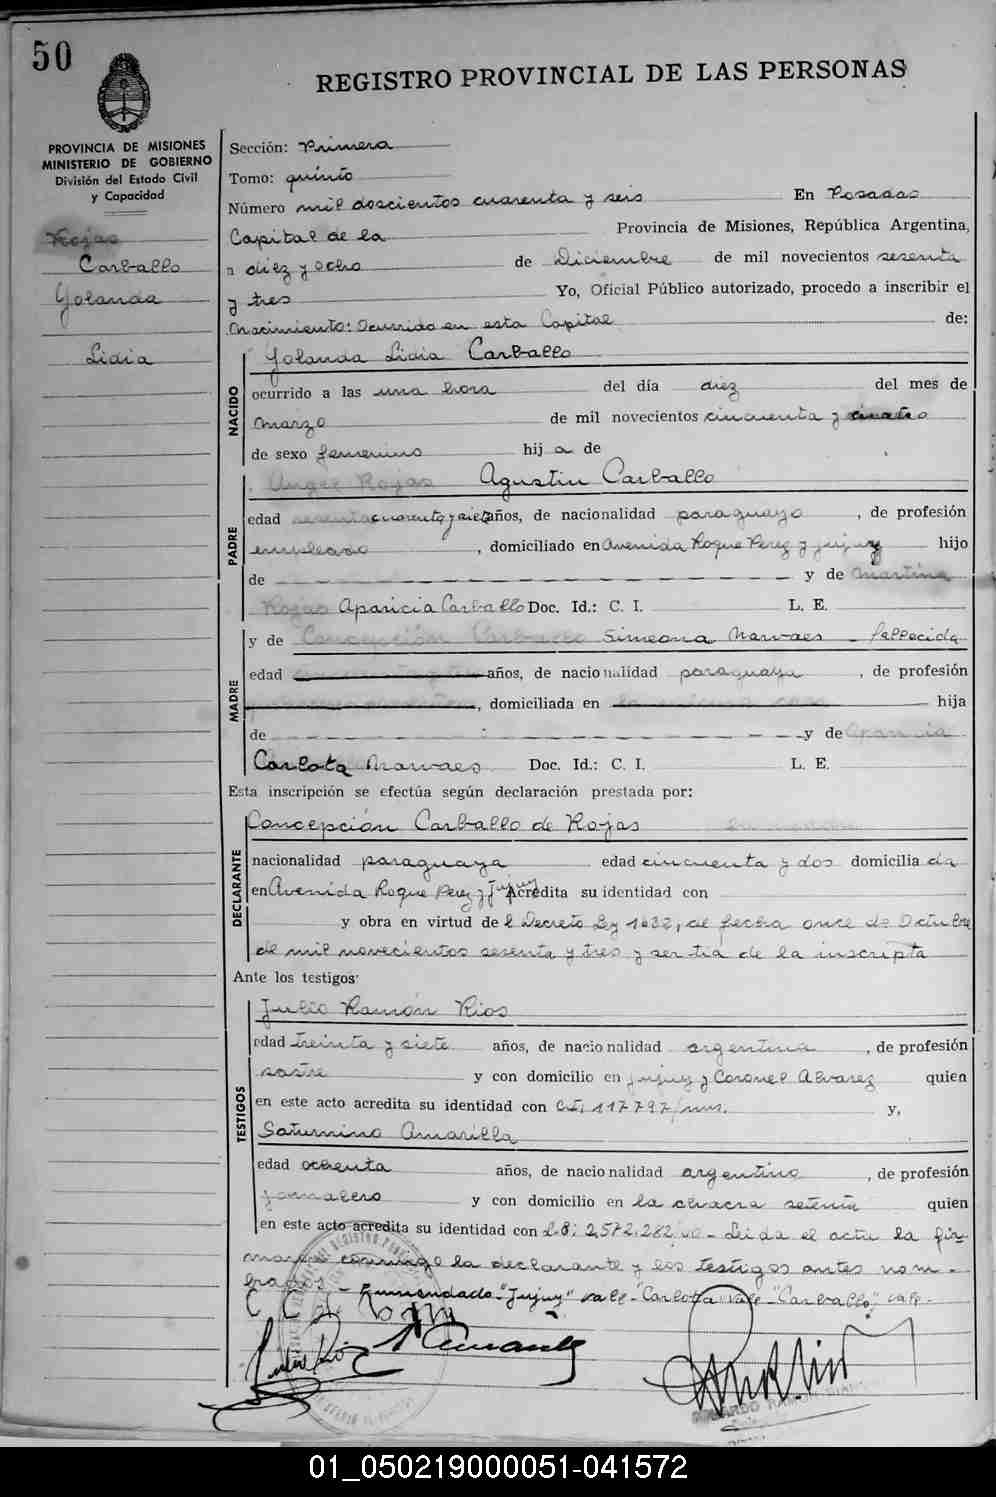 50
REGISTRO PROVINCIAL DE LAS PERSONAS
PROVINCIA DE MISIONES
MINISTERIO DE GOBIERNO
División del Estado Civil
y Capacidad
Rojas
Carballo
Yolanda
Lidia
Sección: Primera
Tomo: quinto
Número mil doscientos cuarenta y seis En Posadas
Capital de la Provincia de Misiones, República Argentina,
a diez y ocho de Diciembre de mil novecientos sesenta
y tres Yo, Oficial Público autorizado, procedo a inscribir el
Nacimiento: Ocurrido en esta Capital de:
NACIDO
Yolanda Lidia Carballo
ocurrido a las una hora del día diez del mes de
Marzo de mil novecientos cincuenta y cuatro
de sexo femenino hij a de
PADRE
Angel Rojas Agustin Carballo
edad sesenta cuarenta y siete años, de nacionalidad paraguayo, de profesión
empleado, domiciliado en Avenida Roque Perez y Jujuy hijo
de y de Martina
Rojas Aparicia Carballo Doc. Id.: C. I. L. E.
MADRE
y de Concepción Carballo Simeona Narvaes - fallecida
edad años, de nacionalidad paraguaya, de profesión
, domiciliada en la misma casa hija
de y de Aparicia
Carlota Narvaes Doc. Id.: C. I. L. E.
Esta inscripción se efectúa según declaración prestada por:
DECLARANTE
Concepción Carballo de Rojas
nacionalidad paraguaya edad cincuenta y dos domicilia da
en Avenida Roque Perez y Jujuy Acredita su identidad con
y obra en virtud de l Decreto Ley 1632, de fecha once de Octubre
de mil novecientos sesenta y tres y ser tia de la inscripta
Ante los testigos:
TESTIGOS
Julio Ramón Rios
edad treinta y siete años, de nacionalidad argentina, de profesión
sastre y con domicilio en Jujuy y Coronel Alvarez quien
en este acto acredita su identidad con C.I. 117797/mns. y,
Saturnino Amarilla
edad ochenta años, de nacionalidad argentino, de profesión
jornalero y con domicilio en la chacra setenta quien
en este acto acredita su identidad con Leida el acta la fir-
man conmigo la declarante y los testigos antes nom-
brados - Enmendado "Jujuy" vale - "Carlota" vale - "Carballo", vale.
01_050219000051-041572